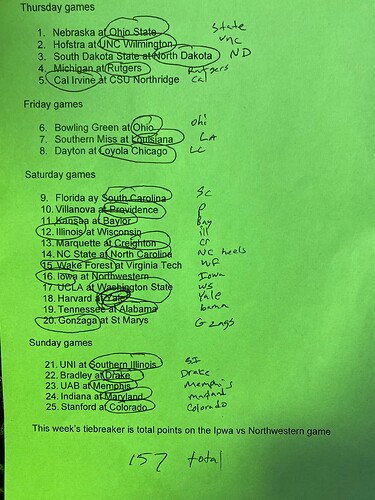 Thursday games
1. Nebraska at Ohio State State
2. Hofstra at UNC Wilmington UNC
3. South Dakota State at North Dakota ND
4. Michigan at Rutgers Rutgers
5. Cal Irvine at CSU Northridge Cal
Friday games
6. Bowling Green at Ohio Ohi
7. Southern Miss at Louisiana LA
8. Dayton at Loyola Chicago LC
Saturday games
9. Florida ay South Carolina SC
10. Villanova at Providence P
11. Kansaa at Baylor Bay
12. Illinois at Wisconsin ill
13. Marquette at Creighton Cr
14. NC State at North Carolina NC heels
15. Wake Forest at Virginia Tech WF
16. Iowa at Northwestern Iowa
17. UCLA at Washington State WS
18. Harvard at Yale Yale
19. Tennessee at Alabama bama
20. Gonzaga at St Marys G zags
Sunday games
21. UNI at Southern Illinois SI
22. Bradley at Drake Drake
23. UAB at Memphis Memphis
24. Indiana at Maryland maryland
25. Stanford at Colorado Colorado
This week's tiebreaker is total points on the Ipwa vs Northwestern game
157 total